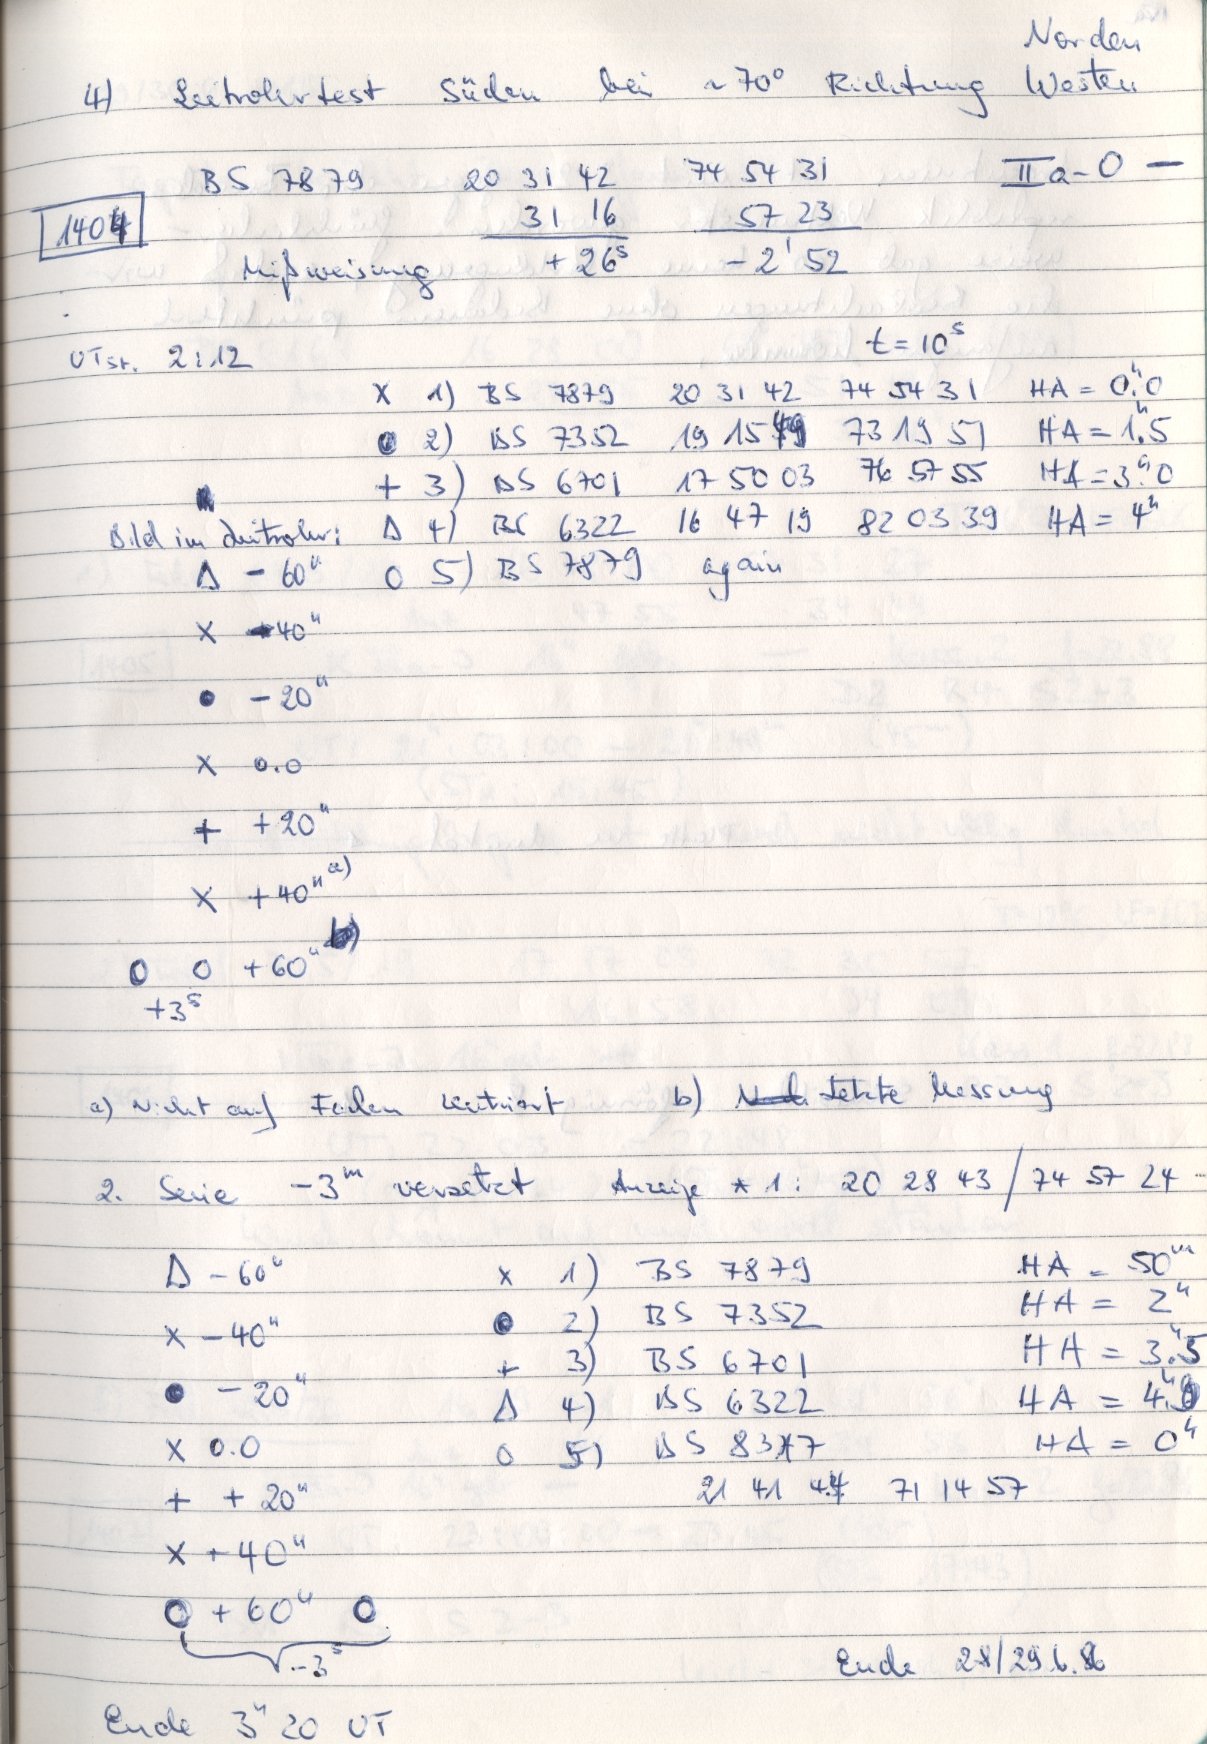 Norden
4) Leitrohrtest Süden bei ~70° Richtung Westen
BS 7879 20 31 42 74 54 31 IIa-O —
1404 31 16 57 23
Mißweisung +26ˢ -2' 52
UT St. 2:12 t = 10ˢ
x 1) BS 7879 20 31 42 74 54 31 HA = 0ʰ.0
● 2) BS 7352 19 15 49 73 19 51 HA = 1ʰ.5
+ 3) BS 6701 17 50 03 76 57 55 HA = 3ʰ.0
Bild im Leitrohr: Δ 4) BS 6322 16 47 19 82 03 39 HA = 4ʰ
Δ -60" o 5) BS 7879 again
x -40"
● -20"
x 0.0
+ +20"
x +40" a)
o o +60" b)
+3ˢ
a) Nicht auf Faden zentriert b) letzte Messung
2. Serie -3ᵐ versetzt Anzeige * 1: 20 28 43 / 74 57 24
Δ -60" x 1) BS 7879 HA = 50ᵐ
x -40" ● 2) BS 7352 HA = 2ʰ
+ 3) BS 6701 HA = 3ʰ.5
● -20" Δ 4) BS 6322 HA = 4ʰ.9
x 0.0 o 5) BS 8317 HA = 0ʰ
+ +20" 21 41 44 71 14 57
x +40"
o +60" o
-3ˢ
Ende 28/29.6.86
Ende 3ʰ 20 UT